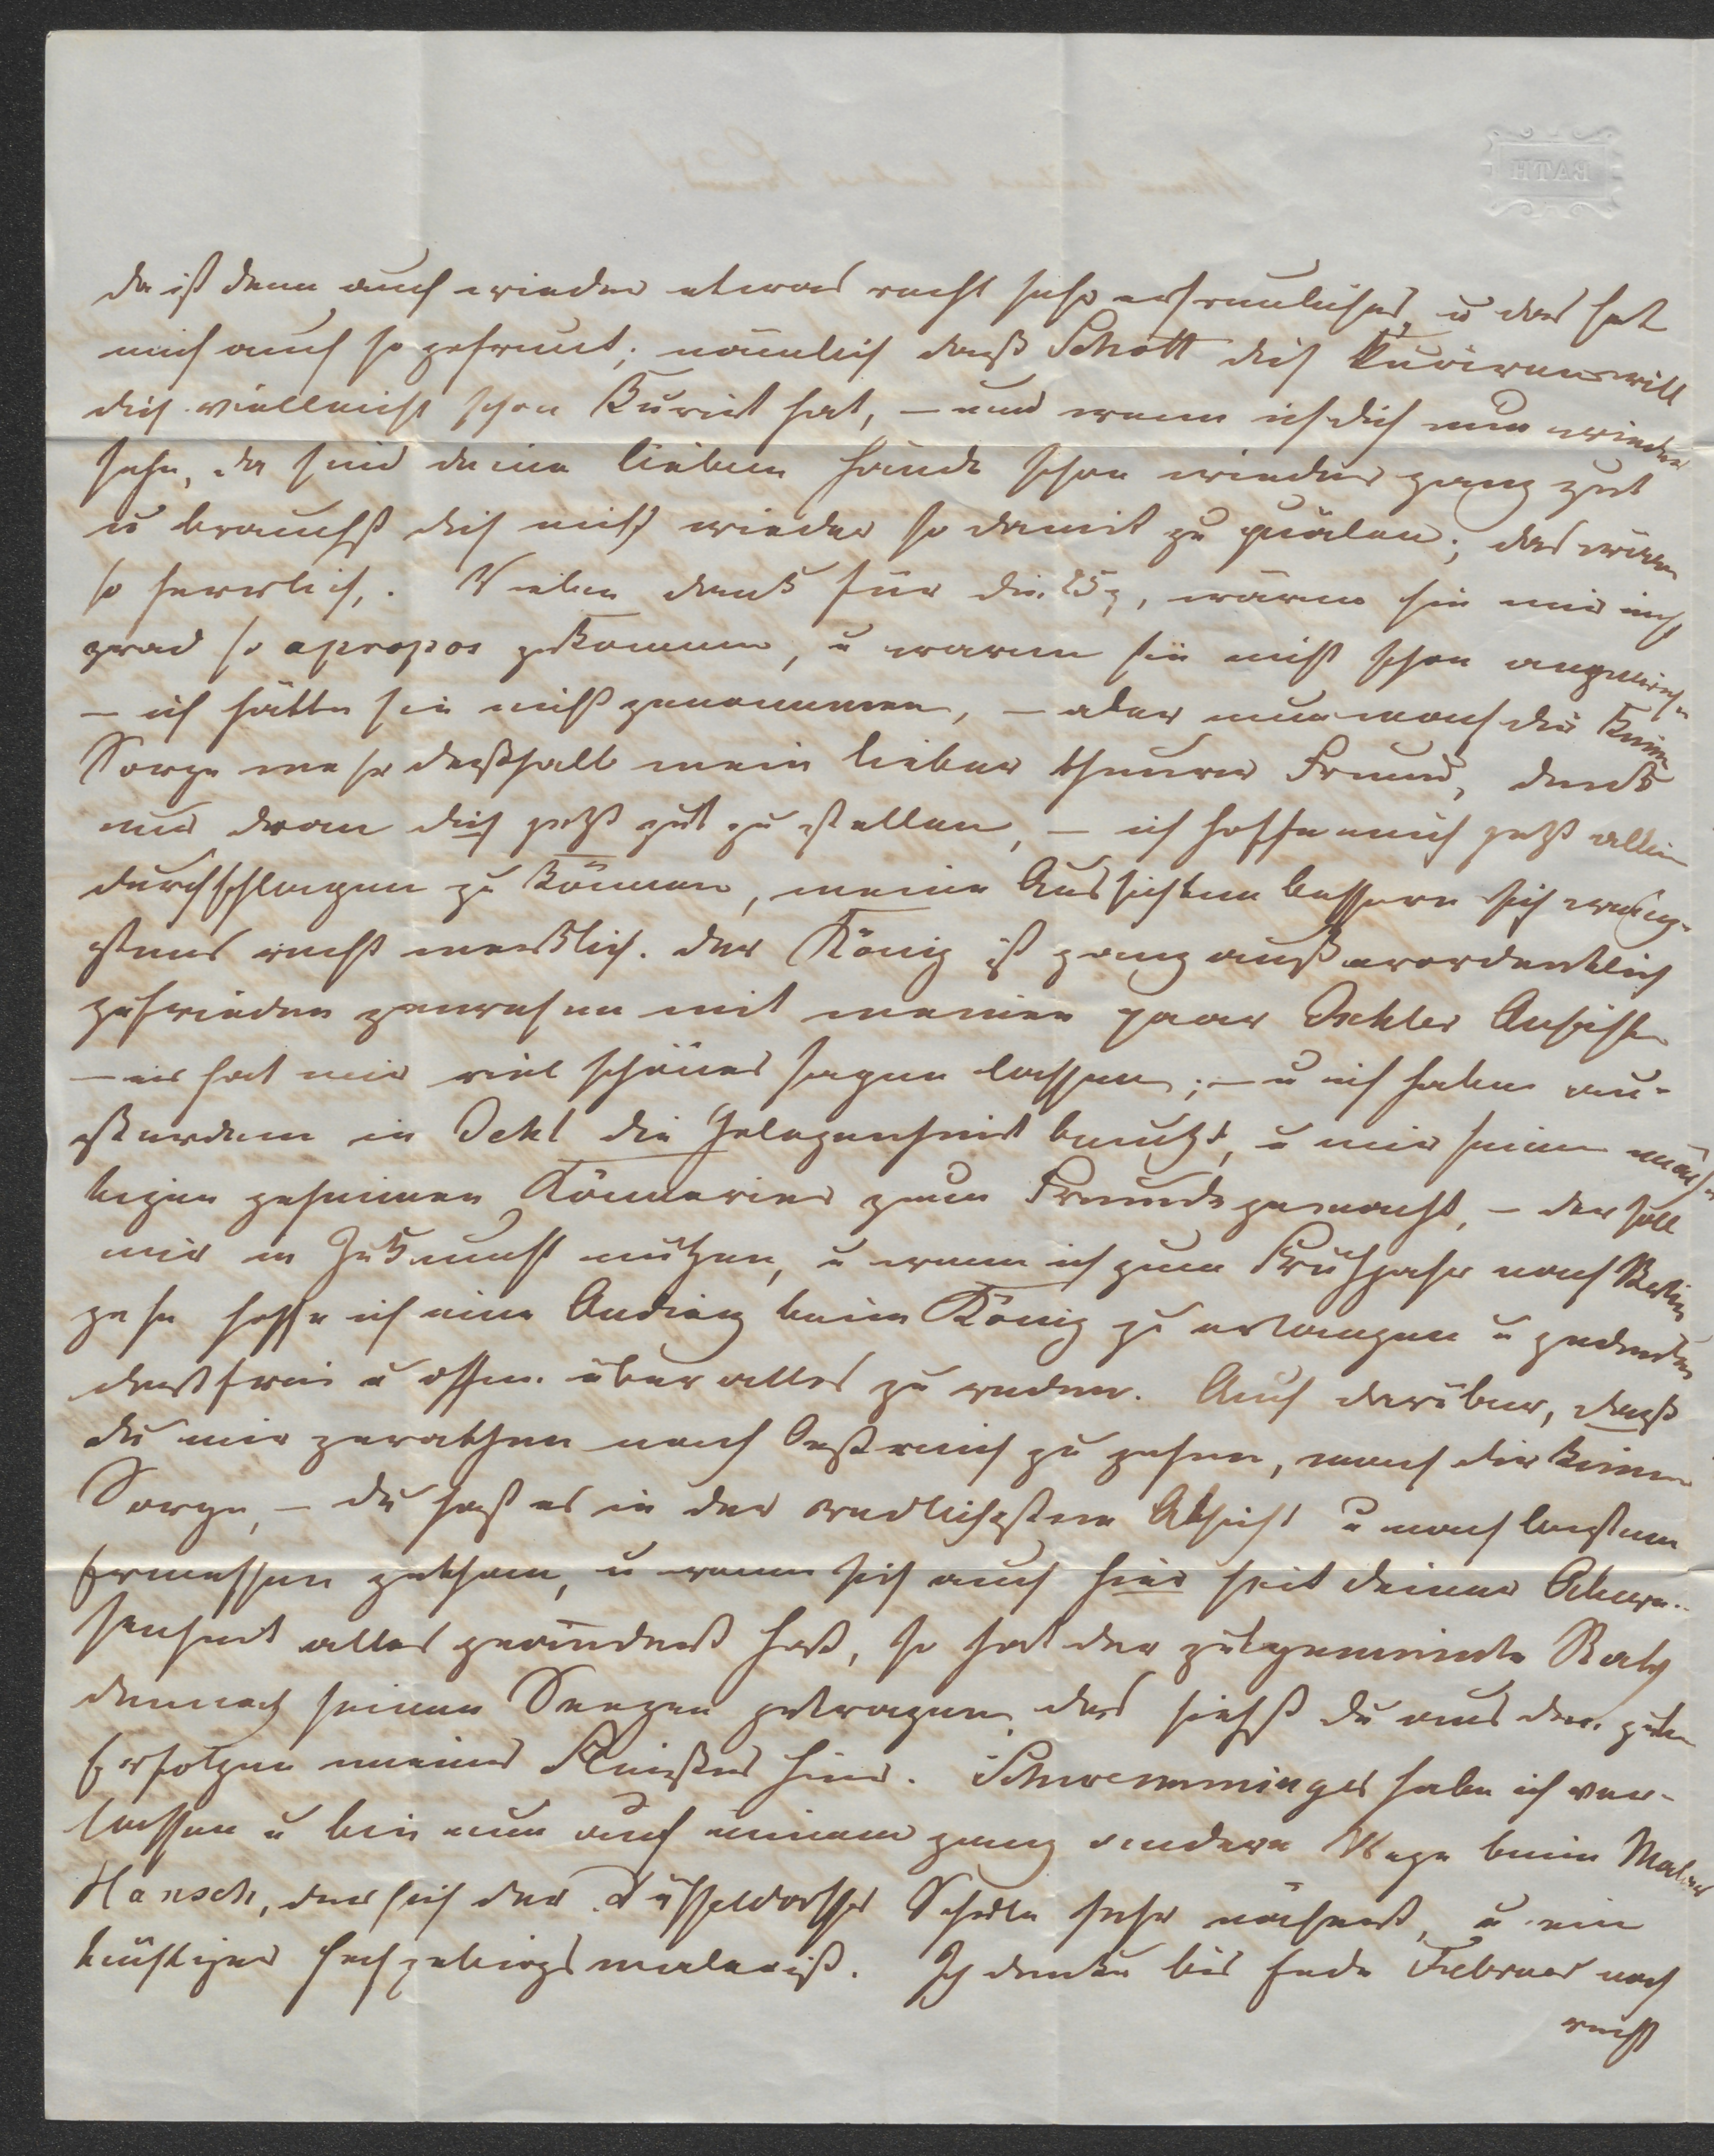 da ist denn auch wieder etwas recht sehr erfreuliches, u das hat
mich auch so gefreut; nämlich daß Schott dich kuriren will
dich vielleicht schon kurirt hat, – und wenn ich dich nun wieder
sehe, da sind deine lieben Hände schon wieder ganz gut
u brauchst dich nicht wieder so damit zu quälen; das wäre
so herrlich. Vielen Dank für die 25, wären sie mir nicht
grad so apropos gekommen, u waren sie nicht schon angewiesen
– ich hätte sie nicht genommen, – aber nun mach dir keine
Sorge mehr deßhalb mein lieber theurer Freund, denke
nur dran dich jetzt gut zu stellen, – ich hoffe mich jetzt allein
durchschlagen zu können, meine Aussichten bessern sich wenig-
stens recht merklich. Der König ist ganz außerordentlich
zufrieden gewesen mit meinen paar Ischler Ansichten
– er hat mir viel schönes sagen lassen; – u ich habe au-
ßerdem in Ischl die Gelegenheit benutzt, u mir seinen mäch-
tigen geheimen Kämmerier zum Freunde gemacht, – der soll
mir in Zukunft nützen, u wenn ich zum Frühjahr nach Berlin
gehe hoffe ich eine Audienz beim König zu erlangen u gedenke
dreist frei u offen über alles zu reden. Auch darüber, daß
du mir gerathen nach Oestreich zu gehen, mach dir keine
Sorge, – du hast es in der redlichsten Absicht u nach bestem
Ermessen gethan, u wenn sich auch hier seit deiner Abwe-
senheit alles geändert hat, so hat der gutgemeinte Rath
dennoch seinen Seegen getragen, das siehst du aus den guten
Erfolgen meines Fleißes hier. Schwemminger habe ich ver-
lassen u bin nun auf einem ganz andern Wege beim Maler
Hansch, der sich der Düsseldorffer Schule sehr nähert, u ein
tüchtiger Hochgebirgsmaler ist. Ich denke bis Ende Februar noch
recht
RATH